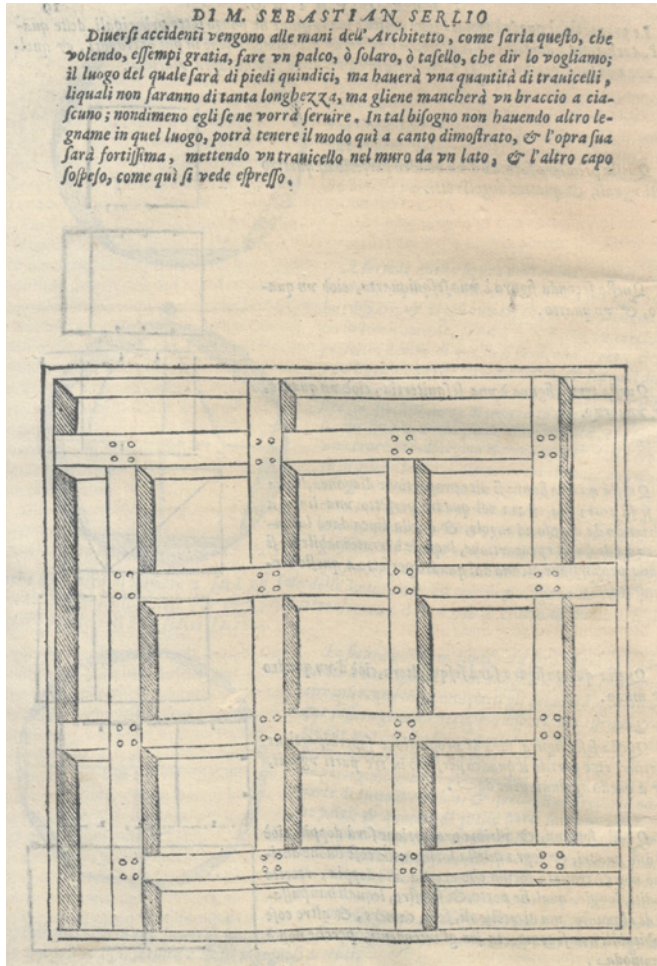 DI M. SEBASTIAN SERLIO
Diuersi accidenti vengono alle mani dell'Architetto, come saria questo, che
volendo, essempi gratia, fare vn palco, ò solaro, ò tasello, che dir lo vogliamo;
il luogo del quale sarà di piedi quindici, ma hauerà vna quantità di trauicelli,
liquali non saranno di tanta longhezza, ma gliene mancherà vn braccio a cia-
scuno; nondimeno egli se ne vorrà seruire. In tal bisogno non hauendo altro le-
gname in quel luogo, potrà tenere il modo quì a canto dimostrato, & l'opra sua
sarà fortissima, mettendo vn trauicello nel muro da vn lato, & l'altro capo
sospeso, come quì si vede espresso.